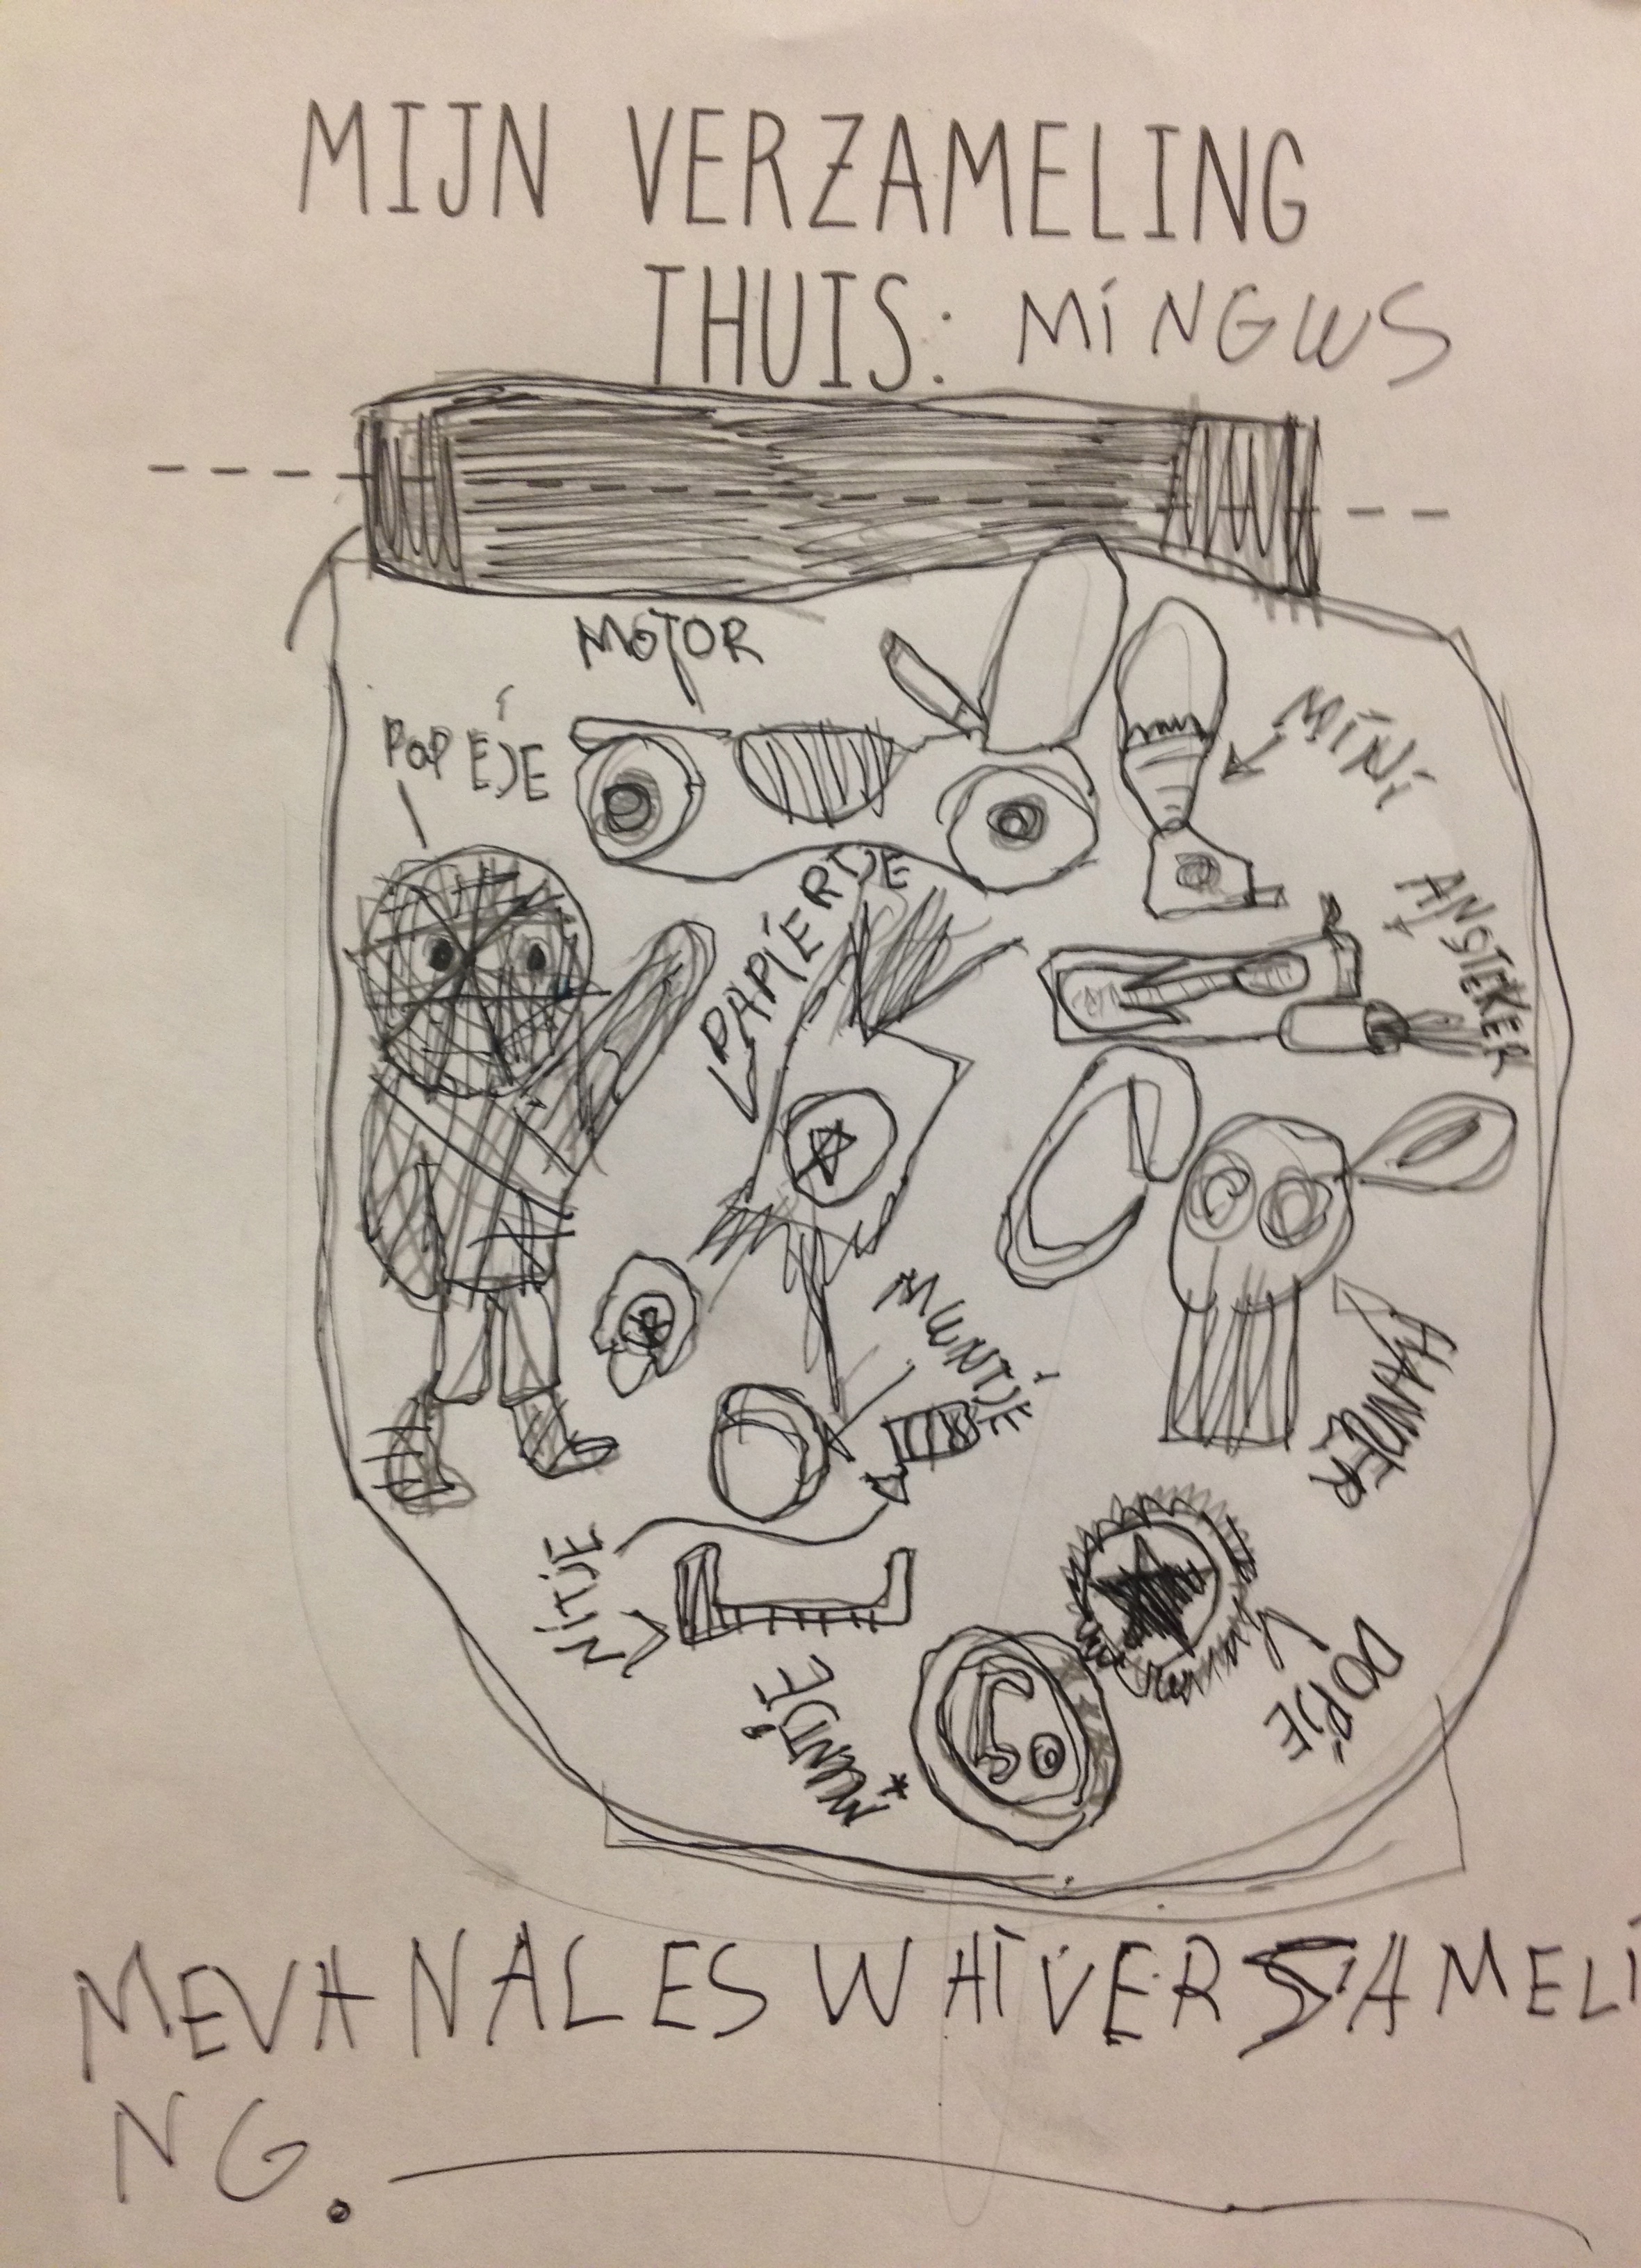 MIJN VERZAMELING
THUIS: MiNGWS
MOTOR
POPEJE
MiNi
PAPIERTJE
ANSTEKER
MUNTJE
HANGER
NiTJE
DOPJE
MUNTJE
MEVANALES WHIVERSAMELI
NG.